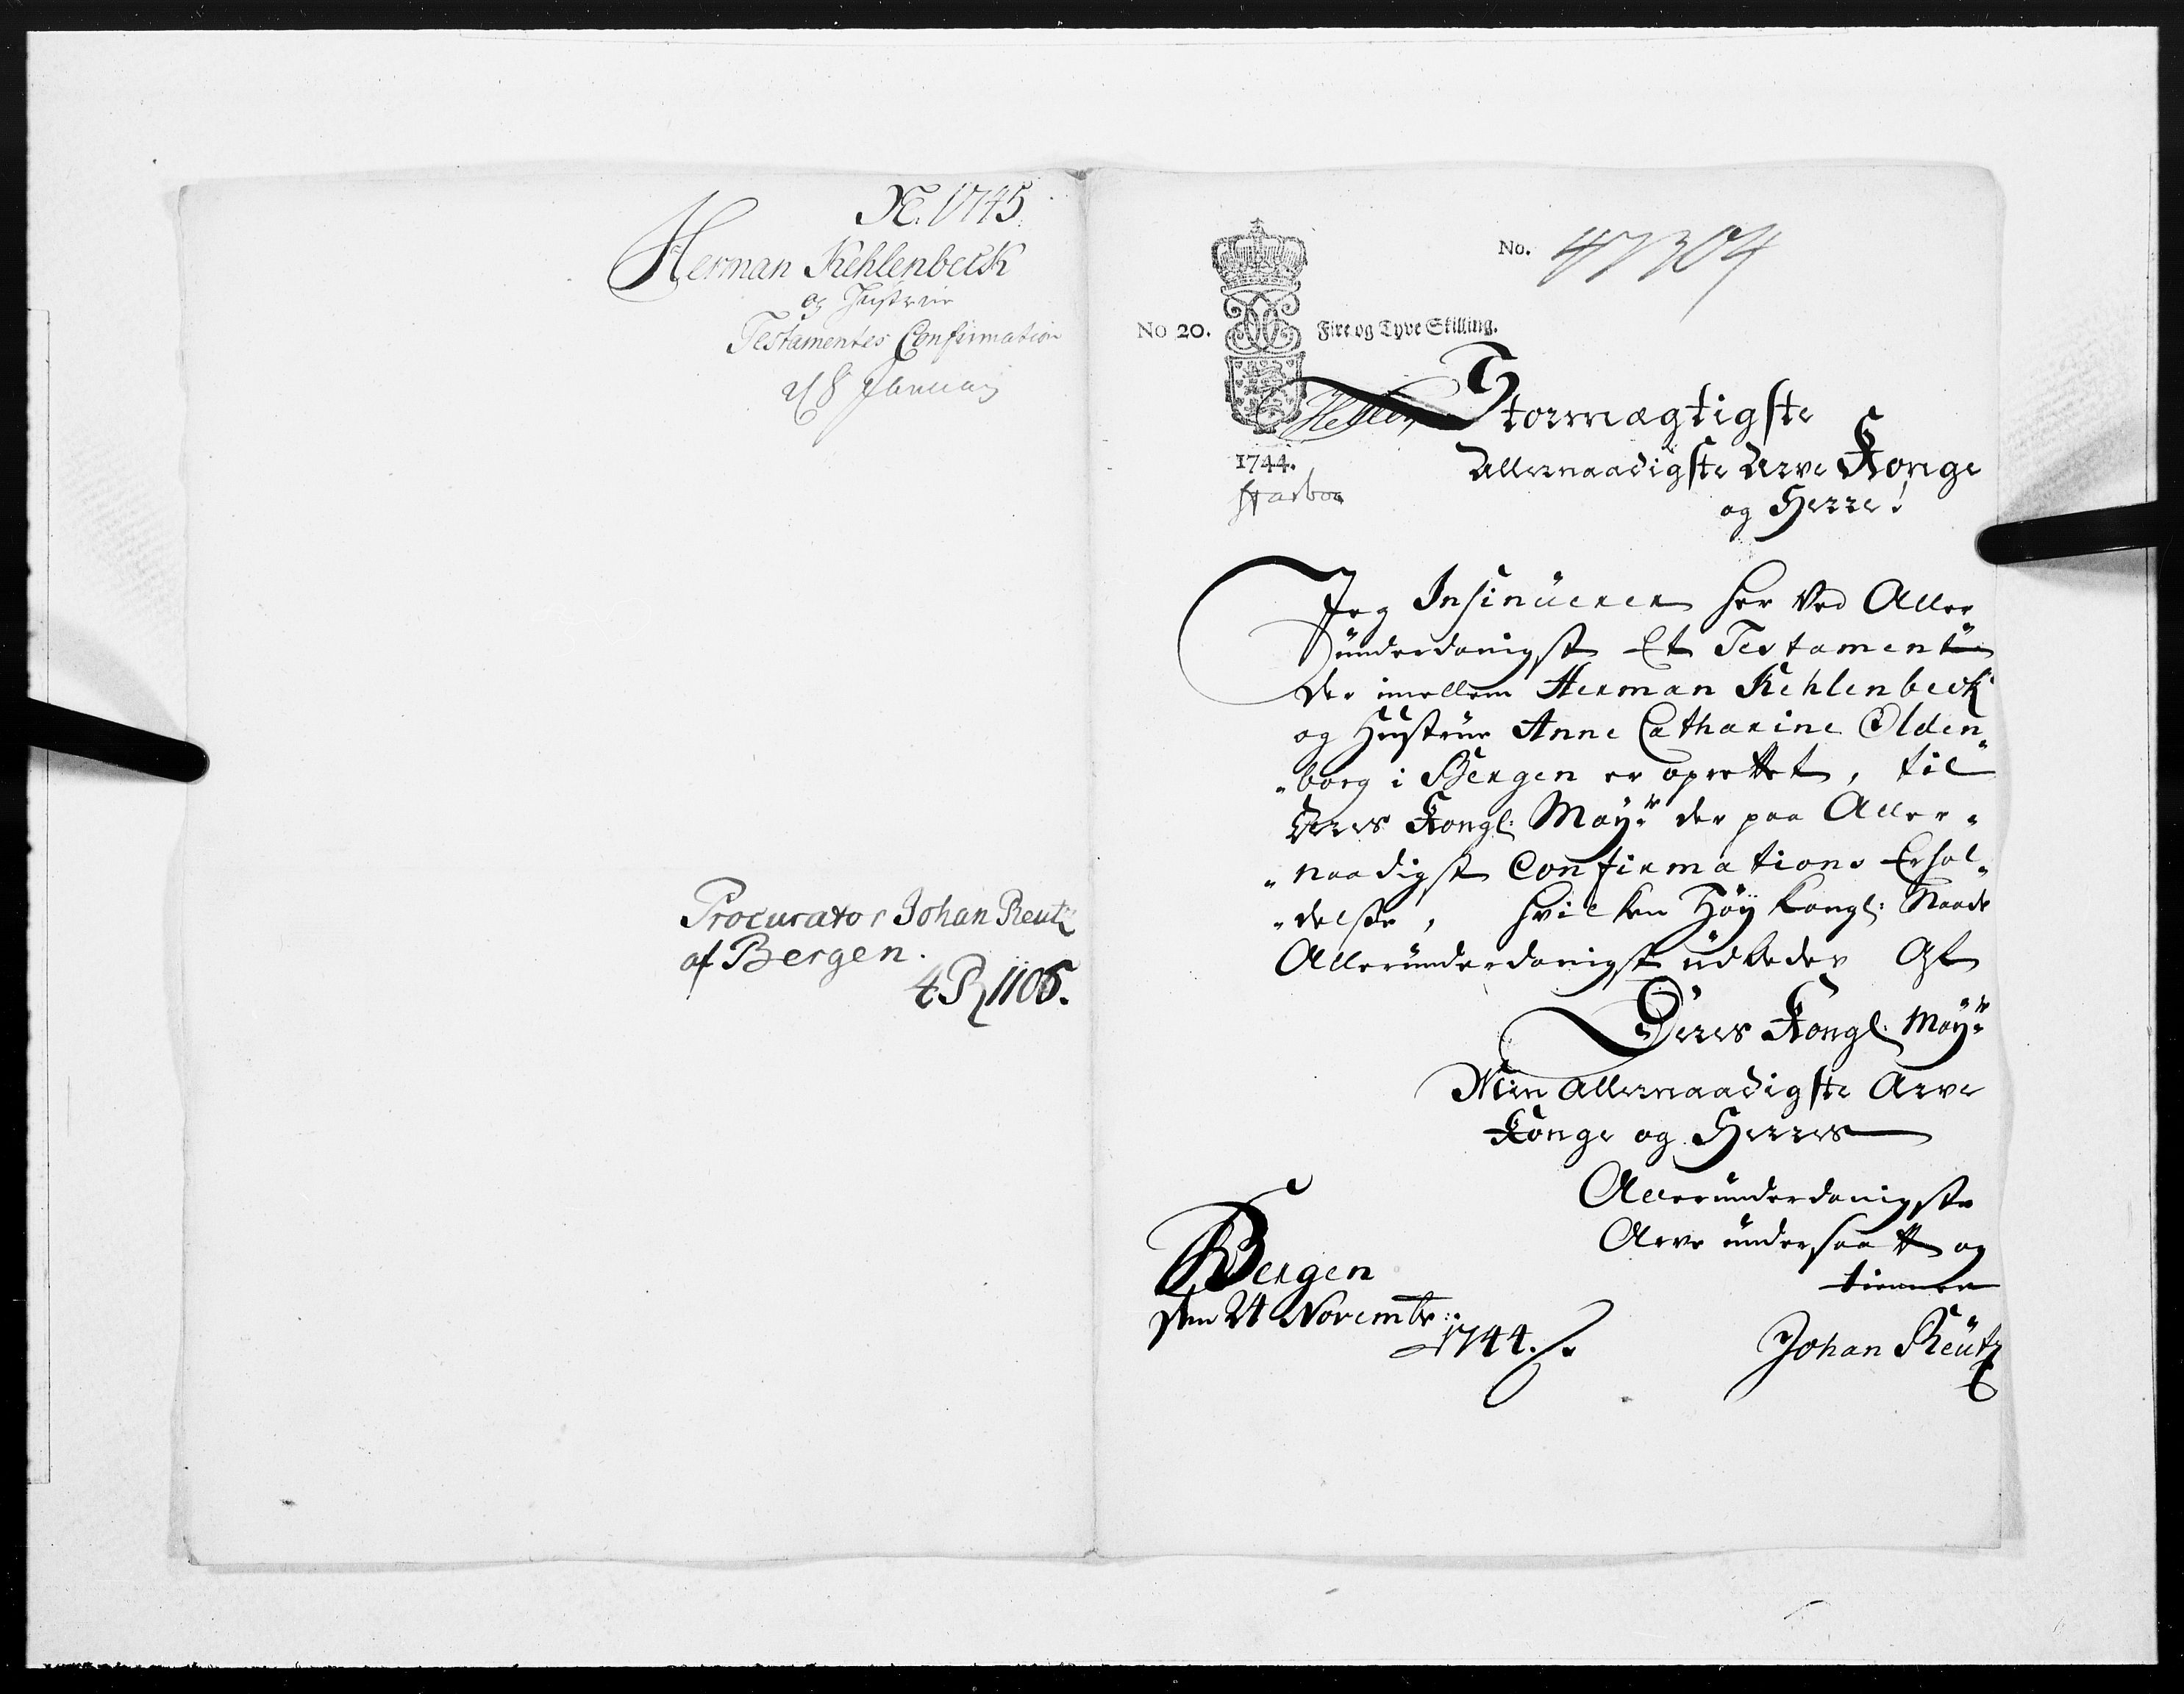 N. 1745.
Herman Kehlenbeck
og Hustrue
Testamentes Confirmation
d 8 Januarij
Procurator Johan Reutz
af Bergen.
4 R 1105.
No. 47304
No 20. Fire og Tyve Skilling.
1744.
Stormægtigste
Allernaadigste Arve Konge
og Herre!
Jeg Insinüerer her ved Aller
ünderdanigst Et Testament
der imellem Herman Kehlenbeck
og Hustrue Anne Catharine Olden„
„borg i Bergen er oprettet, til
Deres Kongl: Mayts der paa Aller„
„naadigst Confirmations Erhol„
„delse, hvilken Høy Kongl: Naade
Alleründerdanigst üdbedes Af
Deres Kongl: Mayts
Min Allernaadigste Arve
Konge og Herres
Alleründerdanigste
Arve undersaatt og
tienner
Bergen
den 24 Novembr:
1744.
Johan Reütz